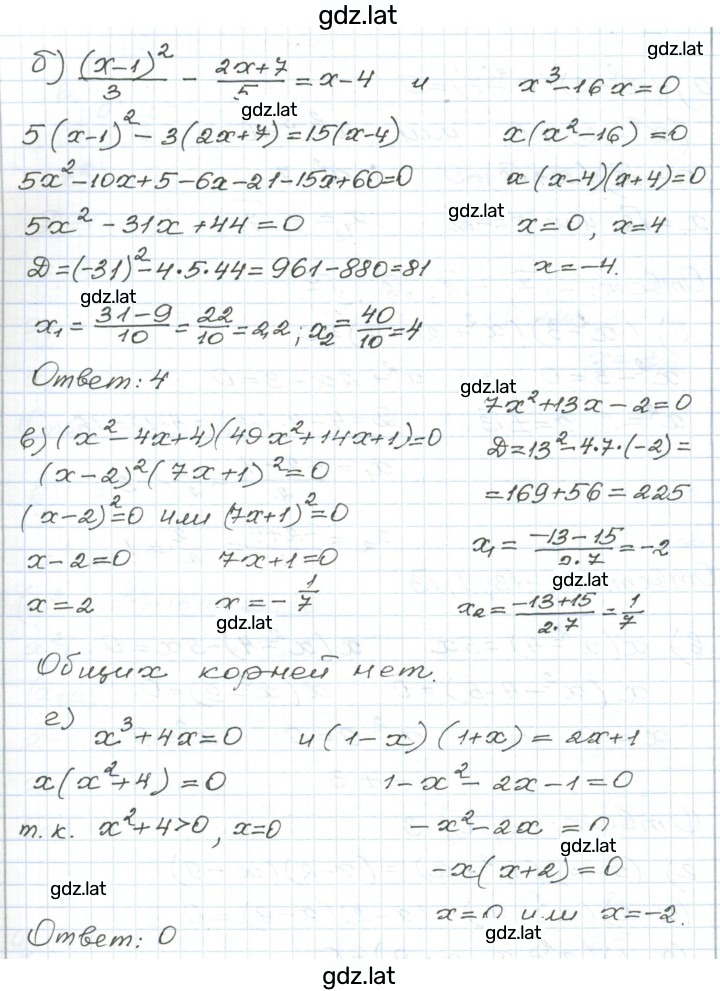 gdz.lat
б) (x-1)²/3 - (2x+7)/5 = x-4 и x³-16x=0
gdz.lat
gdz.lat
5(x-1)²-3(2x+7)=15(x-4) x(x²-16)=0
5x²-10x+5-6x-21-15x+60=0 x(x-4)(x+4)=0
gdz.lat
5x²-31x+44=0 x=0, x=4
Д=(-31)²-4·5·44=961-880=81 x=-4.
gdz.lat
x₁=(31-9)/10=22/10=2,2; x₂=40/10=4
Ответ: 4
gdz.lat
7x²+13x-2=0
в) (x²-4x+4)(49x²+14x+1)=0 Д=13²-4·7·(-2)=
(x-2)²(7x+1)²=0 =169+56=225
(x-2)²=0 или (7x+1)²=0
x-2=0 7x+1=0 x₁=(-13-15)/(2·7)=-2
gdz.lat
x=2 x=-1/7 x₂=(-13+15)/(2·7)=1/7
gdz.lat
Общих корней нет.
г) x³+4x=0 и (1-x)(1+x)=2x+1
x(x²+4)=0 1-x²-2x-1=0
т.к. x²+4>0, x=0 -x²-2x=0
gdz.lat
-x(x+2)=0
gdz.lat
x=0 или x=-2.
gdz.lat
Ответ: 0
gdz.lat